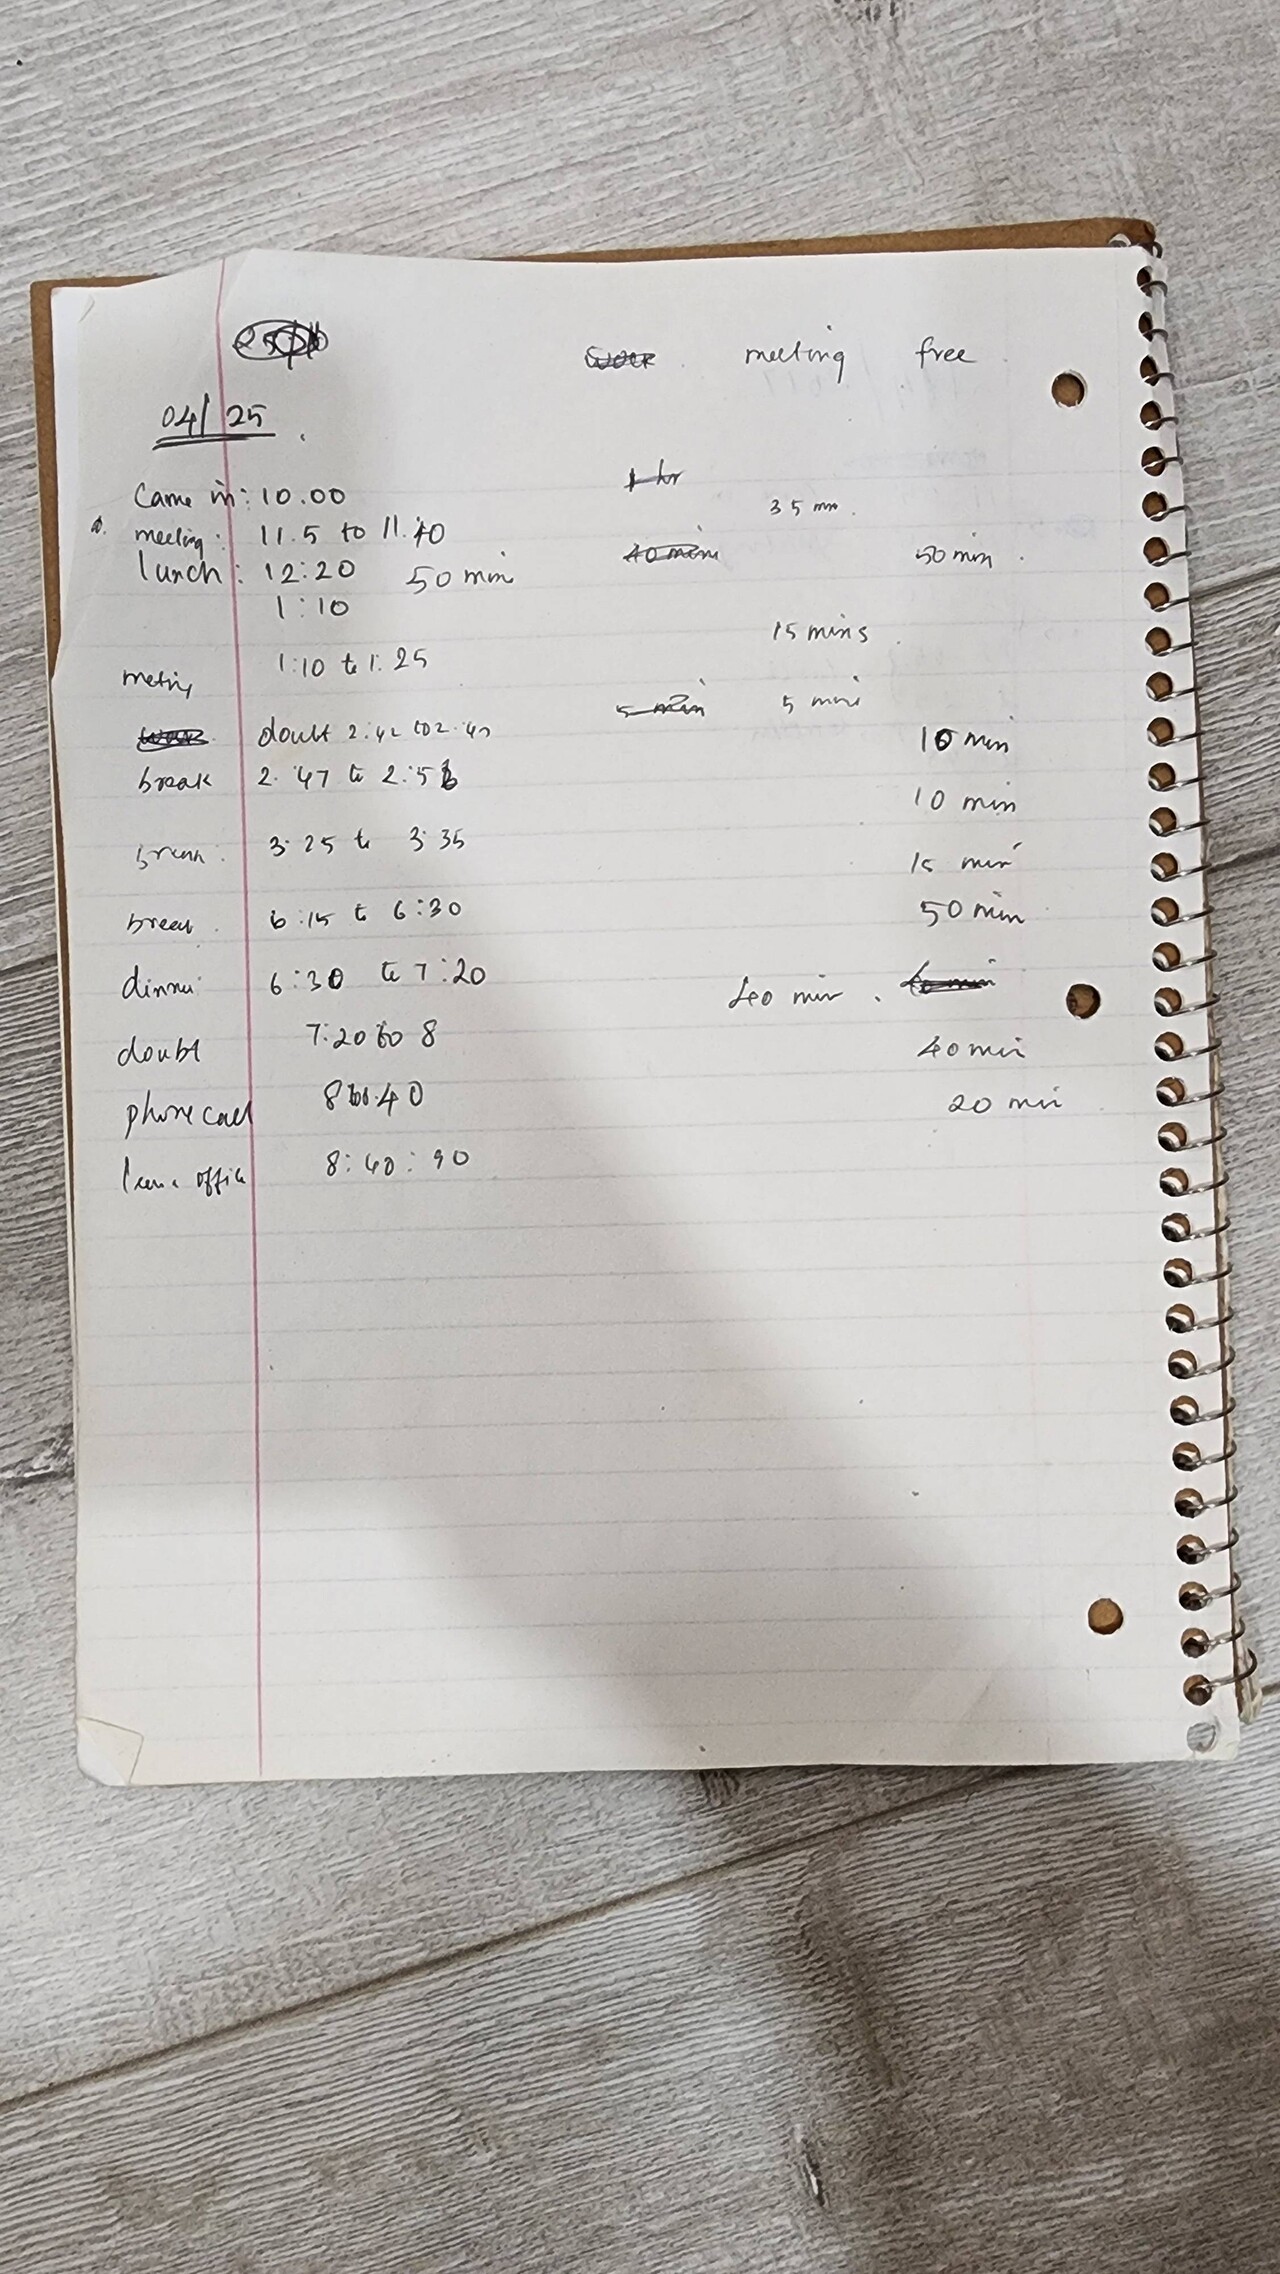 meeting free
04/25
Came in: 10.00
35 min.
meeting: 11.5 to 11.40
lunch: 12:20 50 min 50 min
1:10
15 mins
meting 1:10 to 1:25
5 min 5 min
doubt 2:42 to 2:47
10 min
break 2:47 to 2:56
10 min
break: 3:25 to 3:35
15 min
break 6:15 to 6:30
50 min
dinner 6:30 to 7:20
40 min
doubt 7:20 to 8
40 min
phone call 8 to 8.40
20 min
leave office 8:40:90